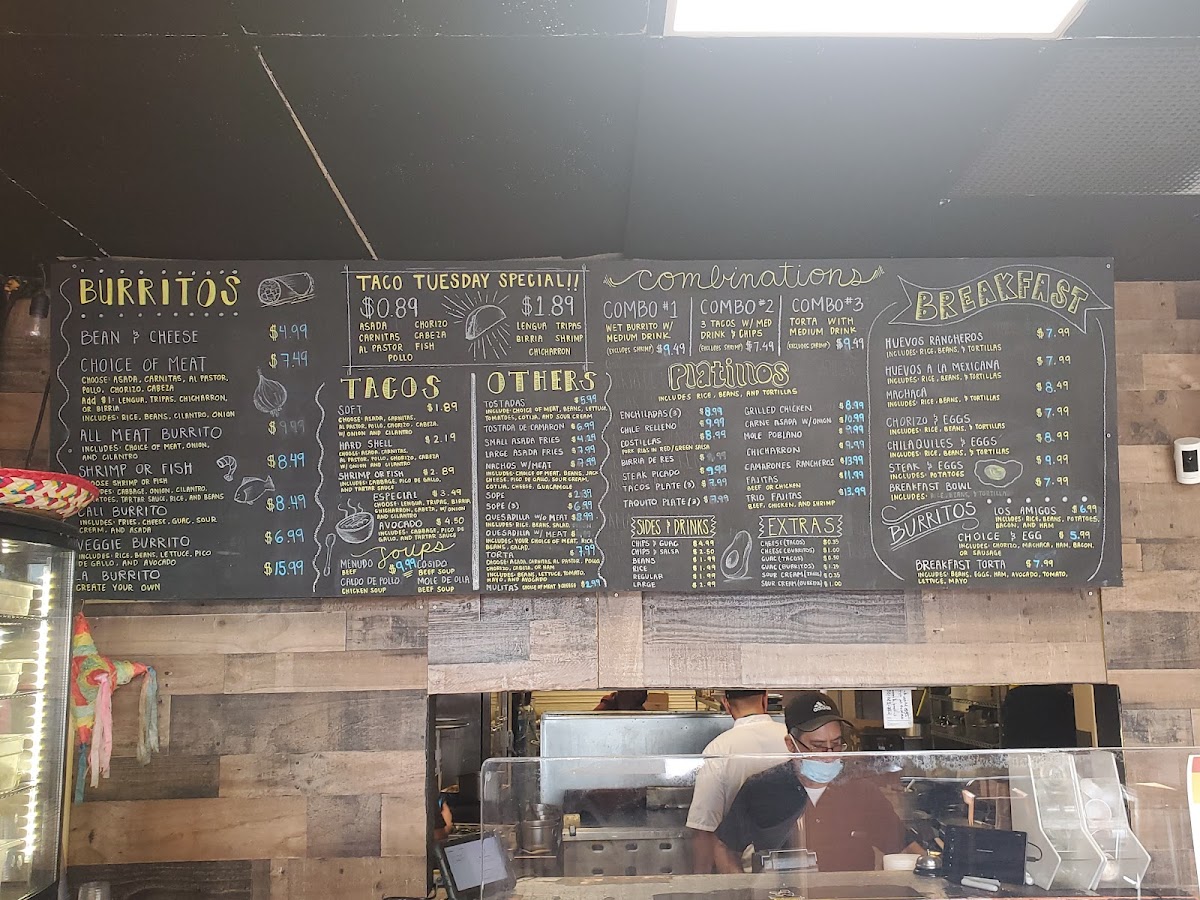 BURRITOS
BEAN & CHEESE $4.99
CHOICE OF MEAT $7.49
CHOOSE: ASADA, CARNITAS, AL PASTOR,
POLLO, CHORIZO, CABEZA
Add $1: LENGUA, TRIPAS, CHICHARRON,
OR BIRRIA
INCLUDES: RICE, BEANS, CILANTRO, ONION
ALL MEAT BURRITO $9.99
INCLUDES: CHOICE OF MEAT, ONION,
AND CILANTRO
SHRIMP OR FISH $8.49
CHOOSE SHRIMP OR FISH
INCLUDES: CABBAGE, ONION, CILANTRO,
TARTAR SAUCE, RICE, AND BEANS
CALI BURRITO $8.49
INCLUDES: FRIES, CHEESE, GUAC, SOUR
CREAM, AND ASADA
VEGGIE BURRITO $6.99
INCLUDES: RICE, BEANS, LETTUCE, PICO
DE GALLO, AND AVOCADO
LA BURRITO $15.99
CREATE YOUR OWN
TACO TUESDAY SPECIAL!!
$0.89
ASADA CHORIZO
CARNITAS CABEZA
AL PASTOR FISH
POLLO
$1.89
LENGUA TRIPAS
BIRRIA SHRIMP
CHICHARRON
TACOS
SOFT $1.89
CHOOSE: ASADA, CARNITAS,
AL PASTOR, POLLO, CHORIZO, CABEZA
W/ ONION AND CILANTRO
HARD SHELL $2.19
CHOOSE: ASADA, CARNITAS,
AL PASTOR, POLLO, CHORIZO, CABEZA
W/ ONION AND CILANTRO
SHRIMP OR FISH $2.89
INCLUDES: CABBAGE, PICO DE GALLO,
AND TARTAR SAUCE
ESPECIAL $3.49
CHOOSE: LENGUA, TRIPAS, BIRRIA
CHICHARRON, W/ ONION
AND CILANTRO
AVOCADO $4.50
INCLUDES: CABBAGE, PICO DE
GALLO, AND TARTAR SAUCE
Soups
MENUDO $9.99 COSIDO
BEEF BEEF SOUP
CALDO DE POLLO MOLE DE OLLA
CHICKEN SOUP BEEF SOUP
OTHERS
TOSTADAS $5.99
INCLUDE: CHOICE OF MEAT, BEANS, LETTUCE,
TOMATOES, COTIJA, AND SOUR CREAM
TOSTADA DE CAMARON $6.99
SMALL ASADA FRIES $4.29
LARGE ASADA FRIES $7.99
NACHOS W/MEAT $7.99
INCLUDES: CHOICE OF MEAT, BEANS, JACK
CHEESE, PICO DE GALLO, SOUR CREAM,
COTIJA, CHEESE, GUACAMOLE
SOPE $2.39
SOPE (3) $6.99
QUESADILLA W/O MEAT $3.99
INCLUDES: RICE, BEANS, SALAD
QUESADILLA W/ MEAT
INCLUDES: YOUR CHOICE OF MEAT, RICE
BEANS, SALAD
TORTA $7.99
CHOOSE: ASADA, CARNITAS, AL PASTOR, POLLO
CHORIZO, CABEZA, OR HAM
INCLUDES: BEANS, LETTUCE, TOMATO,
MAYO, AND AVOCADO
MULITAS CHOICE OF MEAT & CHEESE $2.99
Combinations
COMBO #1
WET BURRITO W/
MEDIUM DRINK
(EXCLUDES SHRIMP) $9.49
COMBO #2
3 TACOS W/ MED
DRINK & CHIPS
(EXCLUDES SHRIMP) $7.49
COMBO #3
TORTA WITH
MEDIUM DRINK
(EXCLUDES SHRIMP) $9.49
Platillos
INCLUDES RICE, BEANS, AND TORTILLAS
ENCHILADAS (3) $8.99
CHILE RELLENO $9.99
COSTILLAS $8.99
PORK RIBS IN RED/GREEN SALSA
BIRRIA DE RES
STEAK PICADO $9.99
TACOS PLATE (3) $7.99
TAQUITO PLATE (2) $7.99
GRILLED CHICKEN $8.99
CARNE ASADA W/ONION $10.99
MOLE POBLANO
CHICHARRON $9.99
CAMARONES RANCHEROS $13.99
FAJITAS $11.99
BEEF OR CHICKEN
TRIO FAJITAS $13.99
BEEF, CHICKEN, AND SHRIMP
SIDES & DRINKS
CHIPS & GUAC $4.99
CHIPS & SALSA $2.50
BEANS $1.99
RICE $1.99
REGULAR $1.99
LARGE $2.99
EXTRAS
CHEESE (TACOS) $0.35
CHEESE (BURRITOS) $1.00
GUAC (TACOS) $0.50
GUAC (BURRITOS) $1.25
SOUR CREAM (TACOS) $0.35
SOUR CREAM (BURRITOS) $1.00
BREAKFAST
HUEVOS RANCHEROS $7.99
INCLUDES: RICE, BEANS, & TORTILLAS
HUEVOS A LA MEXICANA $7.99
INCLUDES: RICE, BEANS, & TORTILLAS
MACHACA $8.49
INCLUDES: RICE, BEANS, & TORTILLAS
CHORIZO & EGGS $7.99
INCLUDES: RICE, BEANS, & TORTILLAS
CHILAQUILES & EGGS $8.99
INCLUDES: RICE, BEANS, & TORTILLAS
STEAK & EGGS $9.99
INCLUDES: POTATOES
BREAKFAST BOWL $7.99
INCLUDES: RICE, BEANS, & TORTILLAS
BURRITOS
LOS AMIGOS $6.99
INCLUDES: RICE, BEANS, POTATOES,
BACON, AND HAM
CHOICE & EGG $5.99
INCLUDES: CHORIZO, MACHACA, HAM, BACON,
OR SAUSAGE
BREAKFAST TORTA $7.99
INCLUDES: BEANS, EGGS, HAM, AVOCADO, TOMATO,
LETTUCE, MAYO
adidas